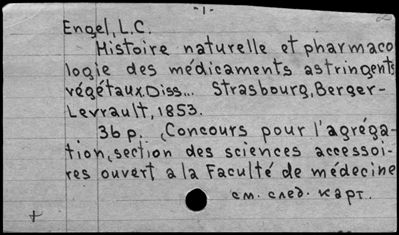 -1-
Engel, L.C.
Histoire naturelle et pharmaco
logie des médicaments astringents
végétaux. Diss... Strasbourg, Berger-
Levrault, 1853.
36 p. Concours pour l'agréga-
tion, section des sciences accessoi-
res ouvert a la Faculté de médecine
см. след. карт.